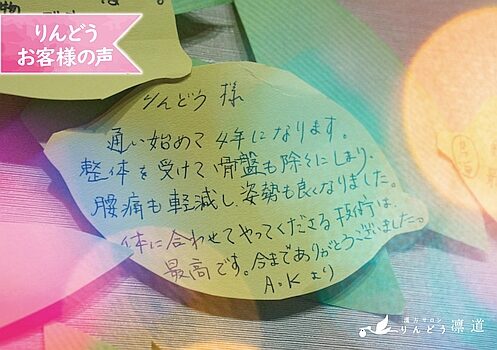 りんどう
お客様の声
りんどう様
通い始めて4年になります。
整体を受けて骨盤も除々にしまり、
腰痛も軽減し、姿勢も良くなりました。
体に合わせてやってくださる は、
最高です。今までありがとうございました。
A・Kより
漢方サロン
りんどう 凛道